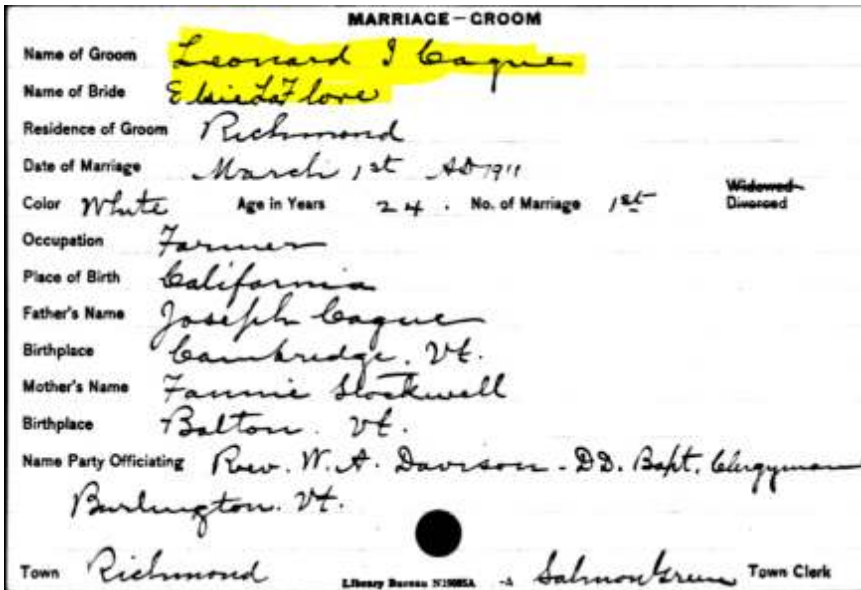 MARRIAGE – GROOM
Name of Groom Leonard I Cague
Name of Bride Elsie LaFlore
Residence of Groom Richmond
Date of Marriage March 1st AD 1911
Color White Age in Years 24. No. of Marriage 1st Widowed Divorced
Occupation Farmer
Place of Birth California
Father's Name Joseph Cague
Birthplace Cambredge, Vt.
Mother's Name Fannie Stockwell
Birthplace Bolton. Vt.
Name Party Officiating Rev. W. A. Davison - DD. Bapt. Clergyman
Burlington. Vt.
Town Richmond Library Bureau Salmon Green Town Clerk